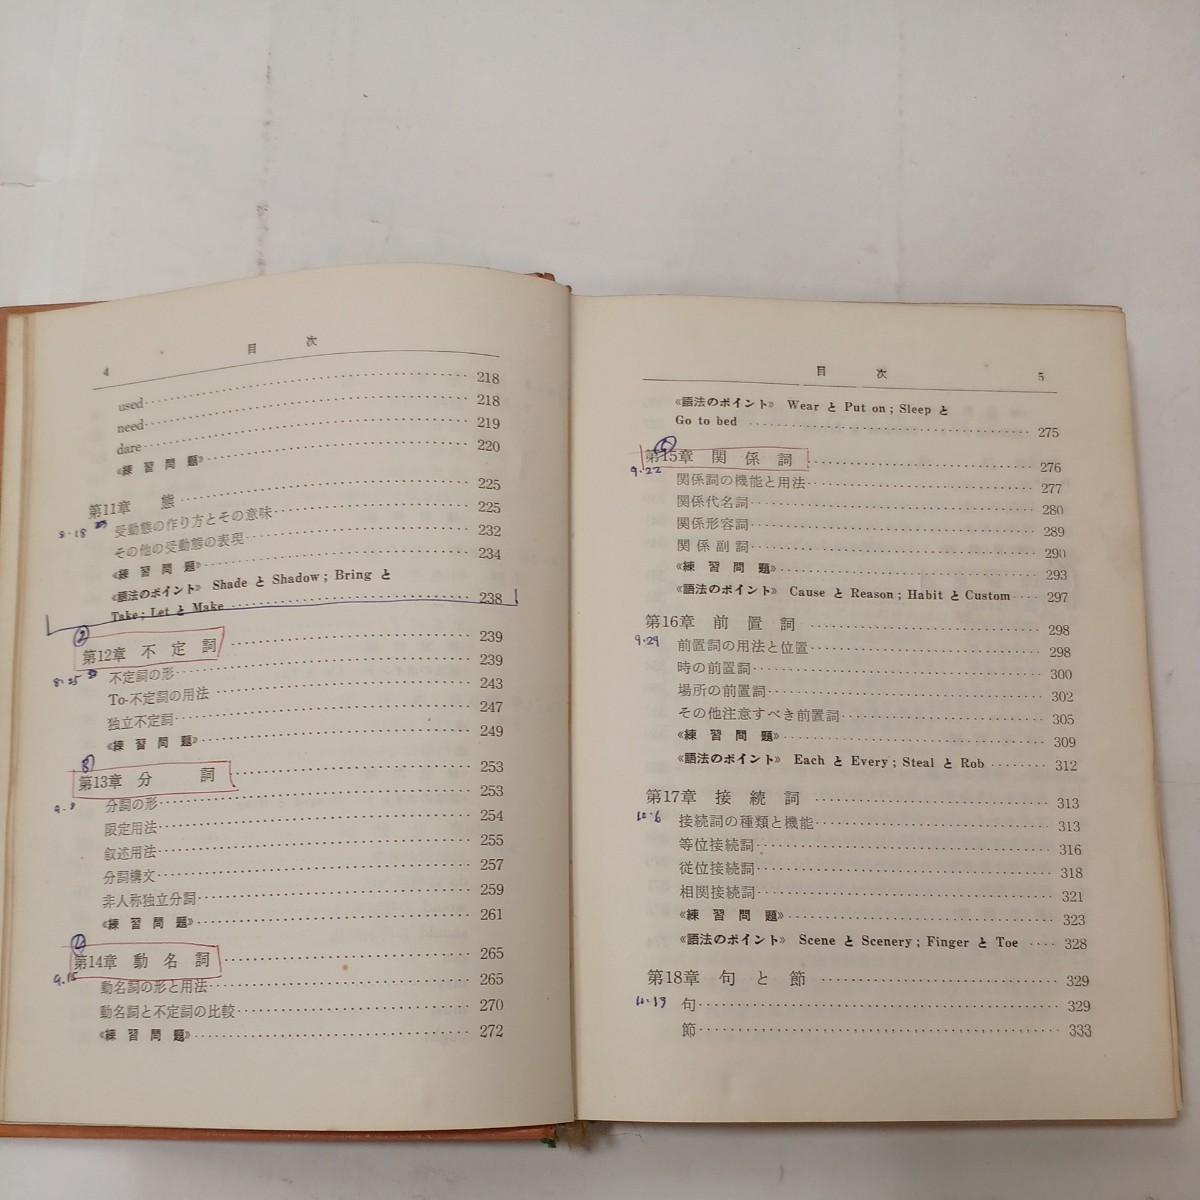 4 目 次
used 218
need 218
dare 219
《練習問題》 220
第11章 態 225
8・18 受動態の作り方とその意味 225
その他の受動態の表現 232
《練習問題》 234
《語法のポイント》 Shade と Shadow ; Bring と
Take ; Let と Make 238
②
第12章 不定詞 239
8・25 不定詞の形 239
To-不定詞の用法 243
独立不定詞 247
《練習問題》 249
第13章 分詞 253
分詞の形 253
限定用法 254
叙述用法 255
分詞構文 257
非人称独立分詞 259
《練習問題》 261
第14章 動名詞 265
9.15 動名詞の形と用法 265
動名詞と不定詞の比較 270
《練習問題》 272
目 次 5
《語法のポイント》 Wear と Put on ; Sleep と
Go to bed 275
第15章 関係詞 276
9.22 関係詞の機能と用法 277
関係代名詞 280
関係形容詞 289
関係副詞 290
《練習問題》 293
《語法のポイント》 Cause と Reason ; Habit と Custom 297
第16章 前置詞 298
9.29 前置詞の用法と位置 298
時の前置詞 300
場所の前置詞 302
その他注意すべき前置詞 305
《練習問題》 309
《語法のポイント》 Each と Every ; Steal と Rob 312
第17章 接続詞 313
10・6 接続詞の種類と機能 313
等位接続詞 316
従位接続詞 318
相関接続詞 321
《練習問題》 323
《語法のポイント》 Scene と Scenery ; Finger と Toe 328
第18章 句と節 329
10・13 句 329
節 333